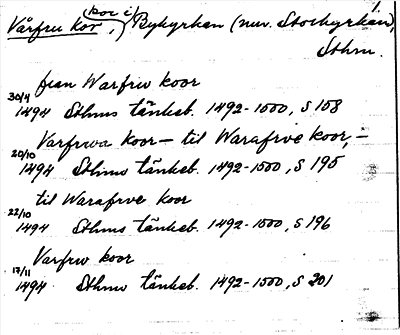 1.
Vårfru kor, kor i, Bykyrkan (nuv. Storkyrkan),
Sthm.
fran Warfrw koor
30/4 1494 Sthms tänkeb. 1492-1500, S 158
Varfrwa koor – til Warafrve koor, –
20/10 1494 Sthms tänkeb. 1492-1500, S 195
til Warafrve koor
22/10 1494 Sthms tänkeb. 1492-1500, S 196
Varfrw koor
17/11 1494 Sthms tänkeb. 1492-1500, S 201